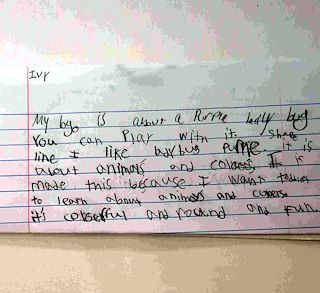 Ivy
My bg is about a Purple ladly bug
You can Play with it She
line I like buybug Purple it is
about animals and colers, It is
made this because I want
to learn about animors and colers.
it's colourful and round and fun.